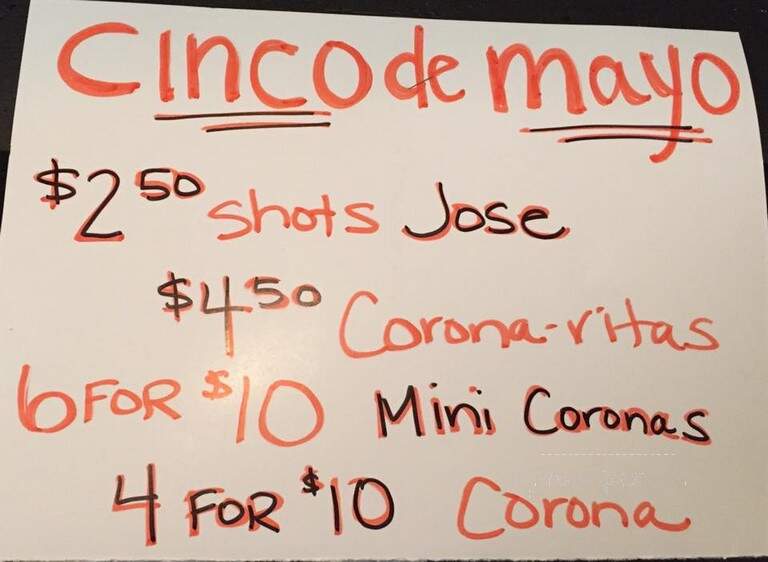 Cinco de mayo
$2 50 shots Jose
$4 50 Corona-ritas
6 FOR $10 Mini Coronas
4 FOR $10 Corona